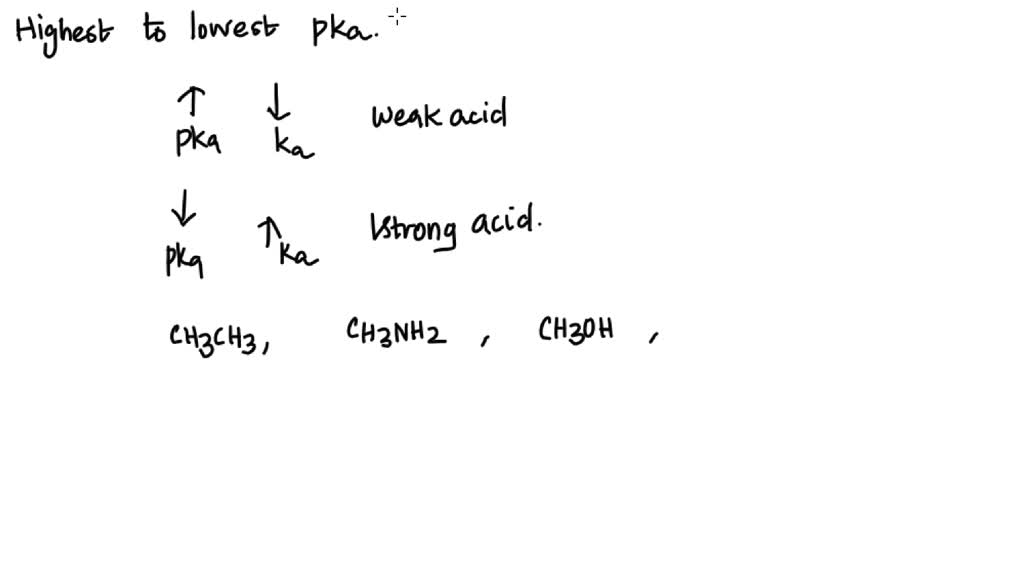 Highest to lowest pka.
↑ ↓ weak acid
pka ka
↓ ↑ strong acid.
pka ka
CH3CH3, CH3NH2 , CH3OH ,